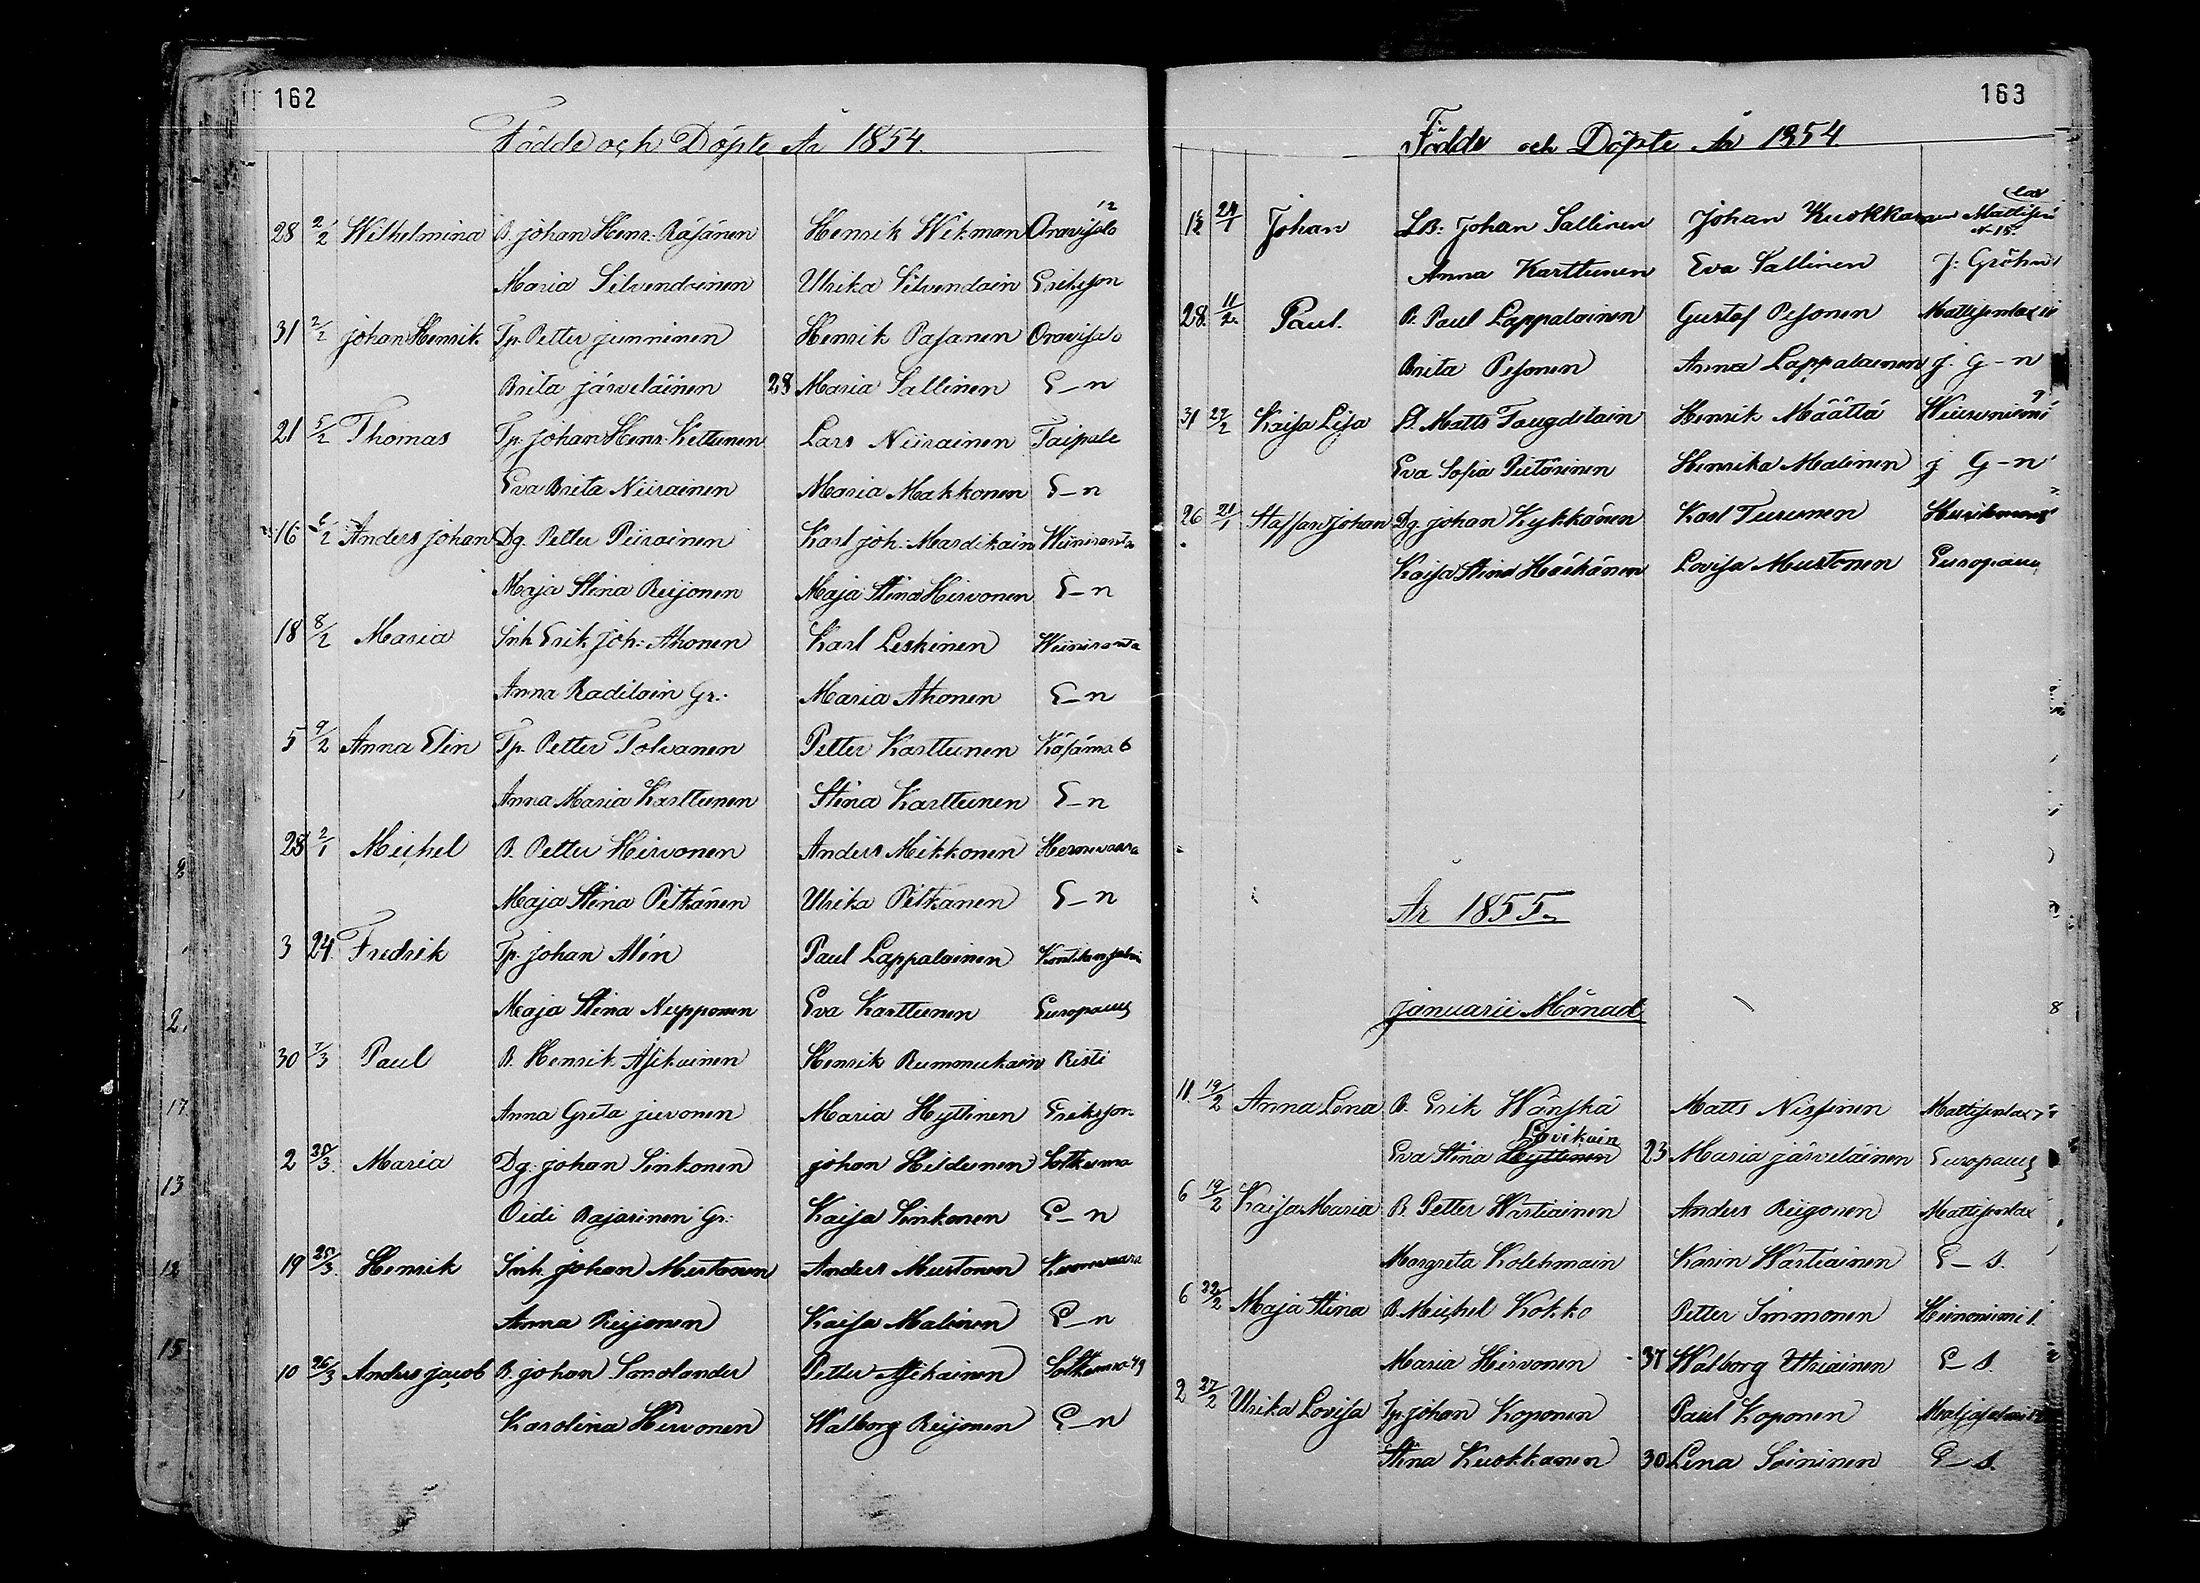 162
Födde och Döpte År 1854.
28 2/2 Wilhelmina B. Johan Henr: Räsänen Henrik Wikman Oravisalo 12
Maria Silvendoinen Ulrika Silvendoin Eriksson
31 2/2 Johan Henrik Tp. Petter Junninen Henrik Pasanen Oravisalo
Brita Järveläinen 28 Maria Sallinen E-n
21 5/2 Thomas Tp. Johan Henr. Kettunen Lars Niirainen Taipale
Eva Brita Niirainen Maria Makkonen E-n
16 Anders Johan Dg. Petter Piirainen Karl Joh: Mardikain Wiiniranta
Maja Stina Reijonen Maja Stina Hirvonen E-n
18 8/2 Maria Inh. Erik Joh: Ahonen Karl Leskinen Wiiniranta
Anna Radilain Gr: Maria Ahonen E-n
5 9/2 Anna Elin Tp. Petter Tolvanen Petter Karttunen Käsämä 6
Anna Maria Karttunen Stina Karttunen E-n
28 2/1 Michel B. Petter Hirvonen Anders Mikkonen Hernevaara
Maja Stina Pitkänen Ulrika Pitkänen E-n
3 24. Fredrik Tp. Johan Alin Paul Lappalainen
Maja Stina Nupponen Eva Karttunen Europaeus
30 7/3 Paul B. Henrik Asikainen Henrik Rummukain Risti
Anna Greta Juvonen Maria Hyttinen Eriksson
2 25/3. Maria Dg: Johan Sinkonen Johan Hildunen Sotkuma
Oidi Rajarinen Gr: Kaisa Sinkonen E-n
19 25/3. Henrik Inh. Johan Mustonen Anders Mustonen
Anna Reijonen Kaisa Malinen E-n
10 26/3 Anders Jacob B. Johan Sandlander Petter Asikainen Sotkuma 49
Karolina Hirvonen Walborg Reijonen E-n
163
Födde och Döpte År 1854.
24/1 Johan LB: Johan Sallinen Johan Kuokkanen N 15.
Anna Karttunen Eva Sallinen J: Gröhn
28. 11/2. Paul. B. Paul Lappalainen Gustaf Pesonen Mattisenlax
Brita Pesonen Anna Lappalainen J. G-n
31 27/2 Kaisa Lisa B. Matts Taugdelain Henrik Määttä
Eva Sofia Pietarinen Henrika Malinen J. G-n
26 21/1 Staffan Johan Dg. Johan Kykkänen Karl Turunen
Kaisa Stina Häikänen Lovisa Mustonen Europaeus
År 1855.
Januarii Månad
11. 19/2 Anna Lena B. Erik Wänskä Matts Nissinen Mattisenlax
Lovikain
Eva Stina Hyttinen 23 Maria Järveläinen Europaeus
6 19/2 Kaisa Maria B. Petter Wartiainen Anders Reijonen Mattisenlax
Margreta Kolehmain Karin Wartiainen E-s.
6 22/2 Maja Stina B. Michel Kokko Petter Immonen Hirvoniemi 1.
Maria Hirvonen 37 Walborg Utriainen E-s.
2 27/2 Ulrika Lovisa Tp. Johan Koponen Paul Koponen
Stina Kuokkanen 30 Lena Soininen E-s.
2.
17
13
12
15
8